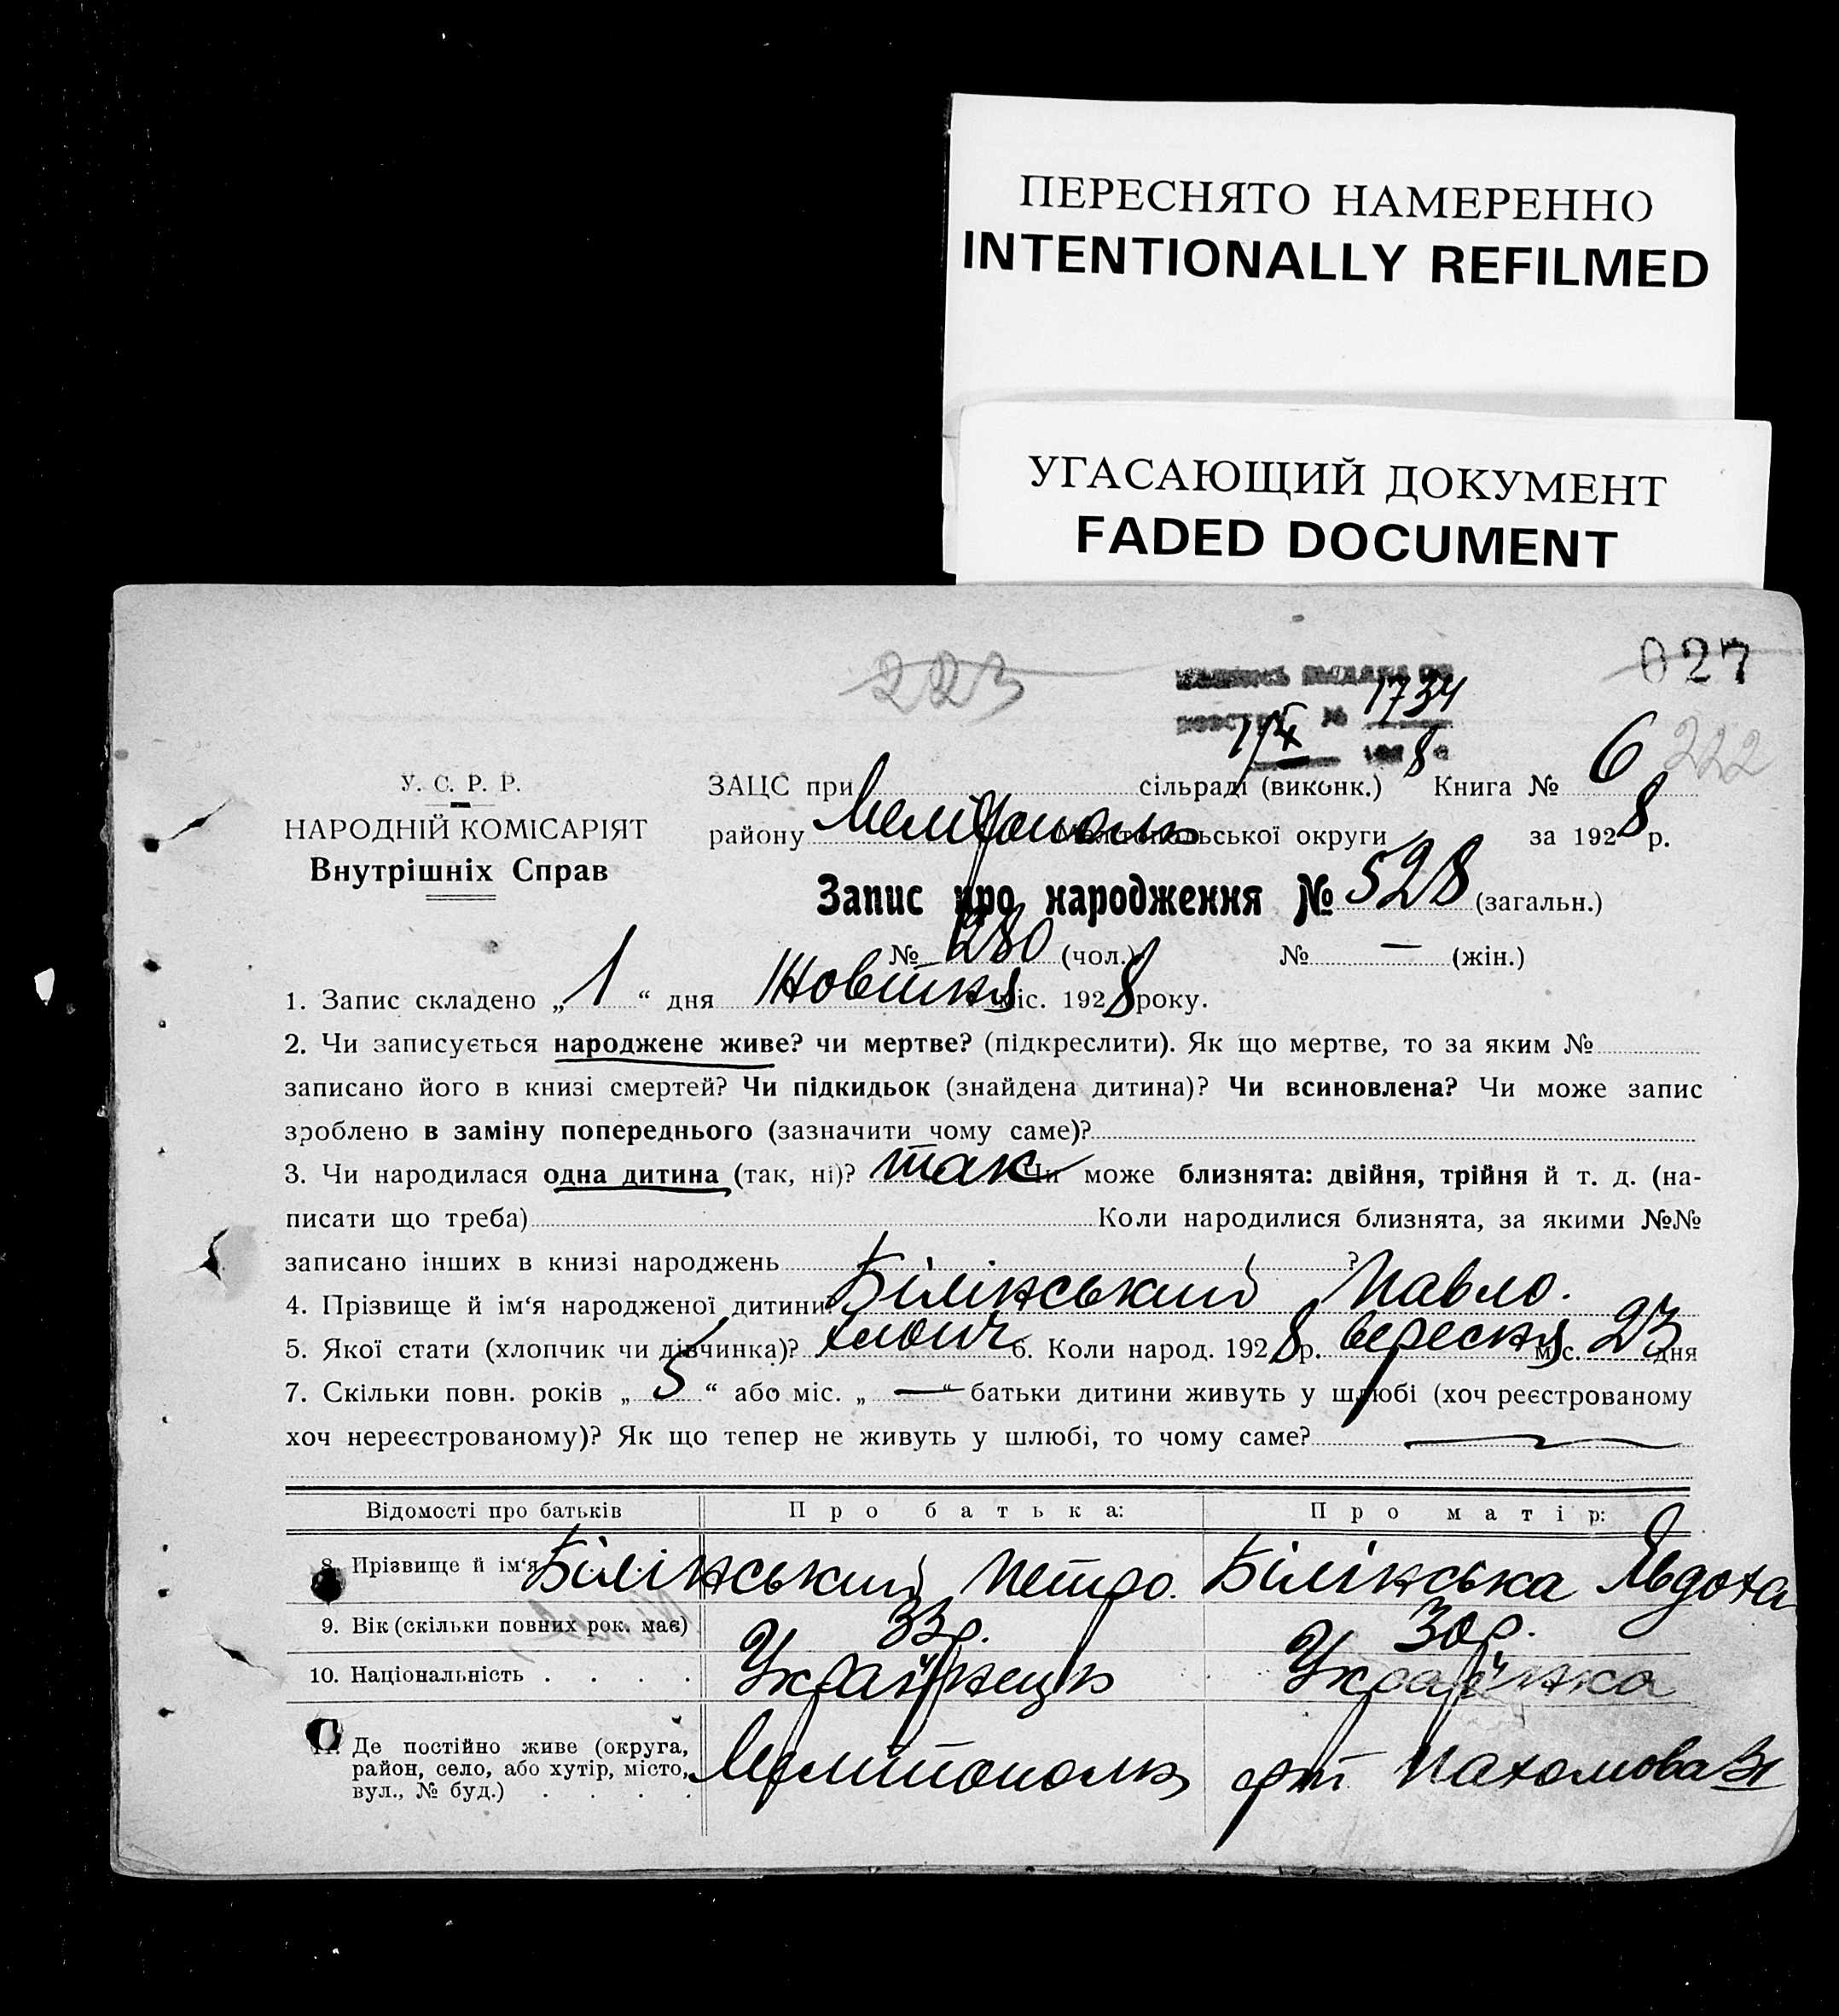 ПЕРЕСНЯТО НАМЕРЕННО
INTENTIONALLY REFILMED
УГАСАЮЩИЙ ДОКУМЕНТ
FADED DOCUMENT
223
027
1734
8
222
У. С. Р. Р.
НАРОДНІЙ КОМІСАРІЯТ
Внутрішніх Справ
ЗАЦС при сільраді (виконк.) Книга № 6
району Мелітополь Мелітопольської округи за 1928 р.
Запис про народження № 528 (загальн.)
№ 280 (чол.) № — (жін.)
1. Запис складено „ 1 “ дня Жовтня міс. 1928 року.
2. Чи записується народжене живе? чи мертве? (підкреслити). Як що мертве, то за яким №
записано його в книзі смертей? Чи підкидьок (знайдена дитина)? Чи всиновлена? Чи може запис
зроблено в заміну попереднього (зазначити чому саме)?
3. Чи народилася одна дитина (так, ні)? так Чи може близнята: двійня, трійня й т. д. (на-
писати що треба) Коли народилися близнята, за якими №№
записано інших в книзі народжень ?
4. Прізвище й ім‘я народженої дитини Білінський Павло.
5. Якої стати (хлопчик чи дівчинка)? хлопч 6. Коли народ. 1928 р. вересня міс. 23 дня
7. Скільки повн. років „ 5 “ або міс. „ — “ батьки дитини живуть у шлюбі (хоч реєстрованому
хоч нереєстрованому)? Як що тепер не живуть у шлюбі, то чому саме?
Відомості про батьків Про батька: Про матір:
8. Прізвище й ім‘я Білінський Петро. Білінська Явдоха
9. Вік (скільки повних рок. має) 33 р. 30 р.
10. Національність . . . . Українець Українка
11. Де постійно живе (округа, район, село, або хутір, місто, вул., № буд.) . . . . Мелітополь Пахомова 31